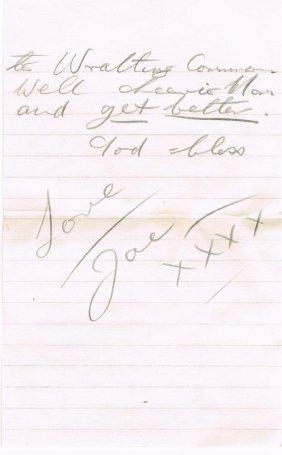 to Wratting Common
Well cheerio Mom
and get better.
God bless
Love
Joe
xxxx